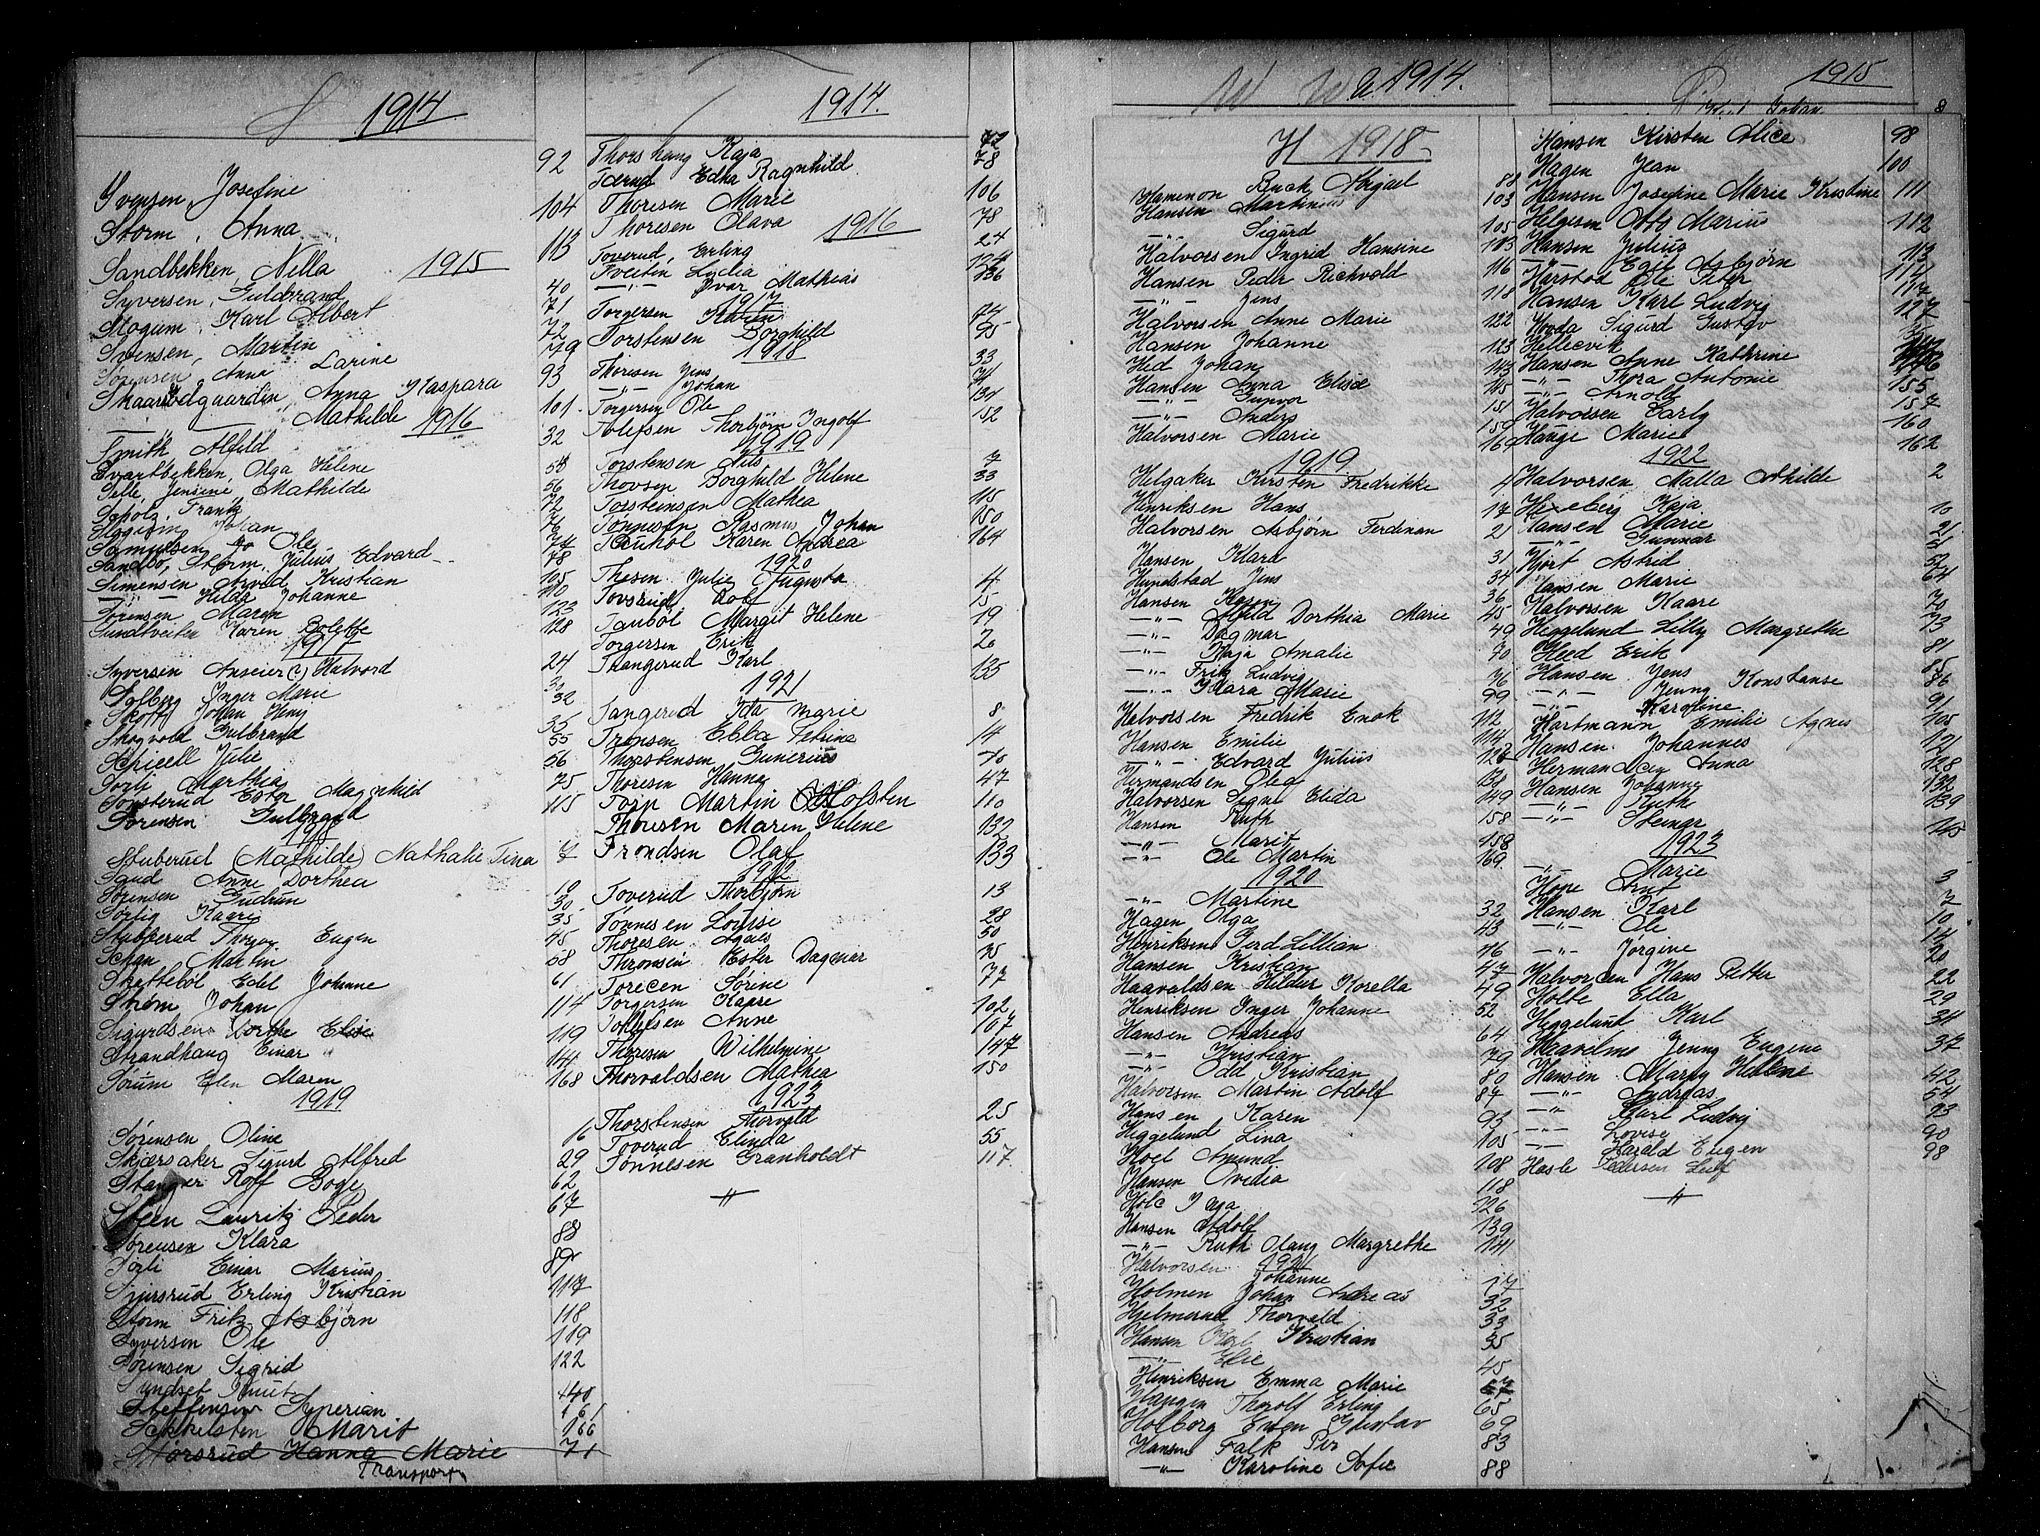 S 1914
Svensen, Josefine 92
Storm, Anna 104
Sandbekken, Nella 113
1915
Syversen, Guldbrand 40
Mogum, Karl Albert 71
Svensen, Martin 72
Sørensen, Anna Larine 79
Anna Kaspara 93
Mathilde 101
1916
Smith Alfild 32
Svartbekken, Olga Helene
Selle, Jensine Mathilde 56
Scholz, Frantz 72
Johan
Samuelsen, Ole
Sandbo, Storm, Julius Edvard 78
Simensen Arvid Kristian 105
Hilda Johanne 110
Sørensen Maren 123
Sundtveiten Karen 128
1917
Syversen Anseier (?) Halvord 24
Solberg Inger Marie 30
Skott Johan Henry 32
Skogvold Gulbrand 35
Schieell Julie 55
Sorli Marthea 56
Sønsterud Ester Magnhild 75
Sørensen Gulbrand 115
1918
Stuberud (Mathilde) Nathalie Tina 7
Saud Anne Dorthea 10
Sørensen Gudrun 30
Sørlig Kaare 35
Stubberud Thorger Eugen 45
Schau Martin 58
Skattebøl Edel Johanne 61
Strøm Johan 114
Sigurdsen Dorthe Elise 119
Strandhaug Einar 141
Sørum Elen Maren 168
1919
Sørensen Oline 16
Skjærsaker Sigurd Alfred 29
Stanger Rolf Boge 62
Steen Lauritz Peder 67
Sørensen Klara 88
Sørli Einar Marius 89
Sjursrud Erling Kristian 117
Storm Fritz Asbjørn 118
Syversen Ole 119
Sørensen Sigrid 122
Sundset Knut 140
Steffensen Syperian 161
Sekkelsten Marit 166
Størsrud Hanna Marie 71
Transport
1914
Thorshaug Kaja 72
Tærud Edna Ragnhild 78
Thoresen Marie 106
Thoresen Olava 78
1916
Toverud, Erling 24
Tveiten Lydia
-"- Ivar Mathias
1917
Torgersen Karen
Torstensen Borghild 95
1918
Thoresen Jens 33
-"- Johan
Torgersen Ole 134
Tolefsen Thorbjørn Ingolf 152
1919
Torstensen Nils 7
Thovsen Borghild Helene 33
Torsteinsen Mathea 115
Tønnesen Rasmus Johan 150
Karen Andrea 164
1920
Thesen Julie Augusta 4
Tovsrud 15
Taubøl Margit Helene 19
Torgersen Erik 20
Thangerud Karl 135
1921
Tangerud Ida Marie 8
Tronsen Ebba Petrine 14
Thorstensen Gunerius 40
Thoresen Hanna 47
Martin Holsten 110
Thoresen Maren Helene 132
Trondsen Olaf 133
1922
Toverud Thorbjørn 13
Tønnesen Lourse 28
Thoresen Agnes 50
Thronsen Ester Dagmar
Torecen Sørine 77
Torgersen Kaare 102
Tollefsen Anne 107
Thoresen Wilhelmine 147
Thorvaldsen Mathea 150
1923
Thorstensen Thorvald 25
Toverud Elinda 55
Tønnesen Granholdt 117
-"-
W 1914.
1915
Johan 8
H 1918
Hamenon Buck Abigael 88
Hansen Martinius 103
-"- Sigurd 105
Halvorsen Ingrid Hansine 113
Hansen Peder Rickvold 116
-"- Jens 118
Halvorsen Anne Marie 122
Hansen Johanne 123
Hed Johan 143
Hansen Anna Elise 145
-"- Gunvor 151
-"- Anders 159
Halvorsen Marie 169
1919
Helgaker Kirsten Fredrikke 4
Henriksen Hans 17
Halvorsen Asbjørn Ferdinan 21
Hansen Klara 31
Hundstad Jens 34
Hansen Karen 36
-"- Alfild Dorthia Marie 45
-"- Dagmar 49
-"- Kaja Amalie 70
-"- Frik Ludvig 76
-"- Klara Marie 99
Halvorsen Fredrik Enok 112
Hansen Emilie 114
-"- Edvard Julius
Hermandsen Olea
Halvorsen Signe Elida 149
Hansen Ruth 158
-"- Marit 158
-"- Ole Martin 169
1920
-"- Martine 32
Hagen Olga 43
Henriksen Gerd Lillian 46
Hansen Kristian 47
Haavaldsen Hildur Korella 49
Henriksen Inger Johanne 52
Hansen Andreas 64
-"- Kristian 79
-"- Odd Kristian 80
Halvorsen Martin Adolf 87
Hansen Karen 93
Heggelund Lina 105
Hoel Amund 108
Hansen Ovidia 118
Hole Inga 126
Hansen Adolf 139
-"- Ruth Olaug Margrethe 141
1921
Halvorsen Johanne 17
Holmen Johan Andreas 32
Hjelmerud Thorvald 33
Hansen Karl Kristian 35
-"- Elie 45
Henriksen Emma Marie 57
Haugen Thorolf Erling 65
Holborg Einen Gustav 69
Hansen Falk Per 83
-"- Karoline Sofie 88
Hansen Kirsten Alice 98
Hagen Jean 100
Hansen Josefine Marie Kristine 111
Helgesen Otto Marius 112
Hansen Julius 113
-"- Egil Asbjørn 114
Harstad Ole Peter 117
Hansen Karl Ludvig 127
Hovda Sigurd Gustav
Hellecvik
Hansen Anne Kathrine
-"- Thora Antonie 155
-"- Arnold 157
Halvorsen Carly 160
Hauge Marie 162
1922
Halvorsen Malla Athilde 2
Hexeberg Kaja 10
Hansen Marie 21
Gunnar
Hjort Astrid 57
Hansen Marie 64
Halvorsen Kaare 70
Heggelund Lilly Margrethe 73
Heed Erik 81
Hansen Jens 85
-"- Jenny Konstanse 86
-"- Karoline 91
Hartmann Emilie Agnes 105
Hansen Johannes 121
Hermansen Anna 128
Hansen Johanne 132
-"- Ruth 139
-"- Steinar 145
1923
-"- Marie 3
Hope Arnt 7
Hansen Karl 10
-"- Ole 14
-"- Jørgine 20
Halvorsen Hans Petter 22
Holte Ella 29
Heggelund Karl 31
Haavelmo Jenny Eugenie 37
Hansen Marty Helene 42
-"- Andreas 54
-"- Karl Ludvig 93
-"- Lovise 90
-"- Harald Eugen 98
Hasle Pedersen Leif
-"-